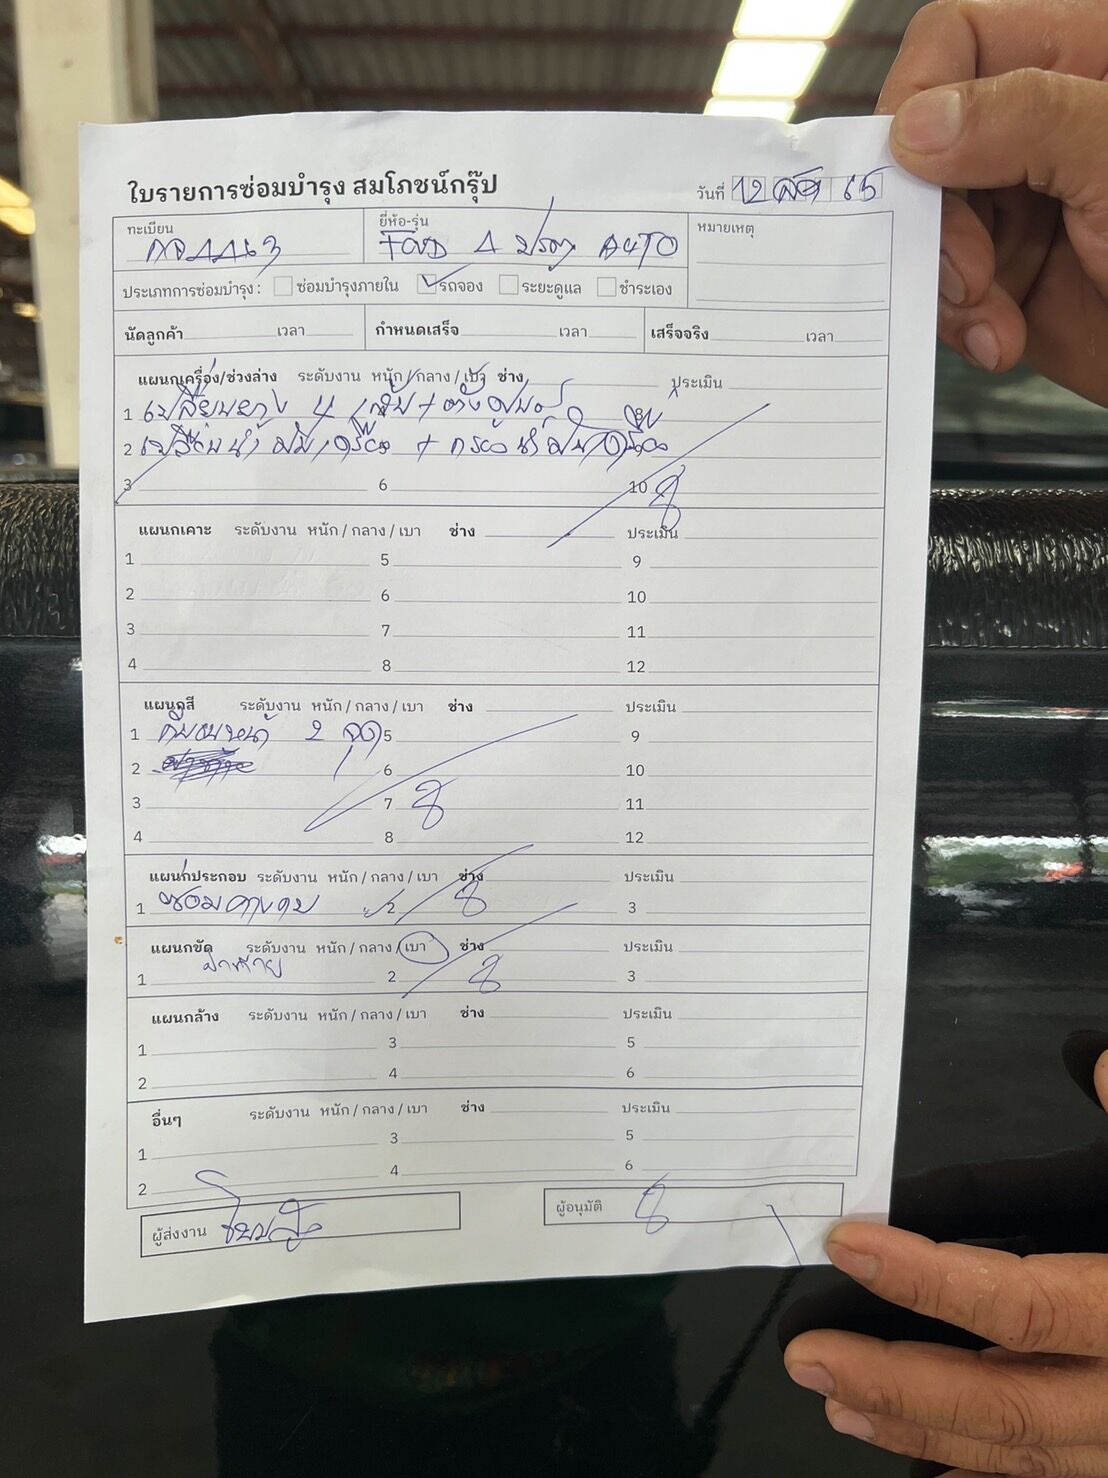 ใบรายการซ่อมบำรุง สมโภชน์กรุ๊ป
วันที่ 12 65
ทะเบียน 4463
ยี่ห้อ-รุ่น FORD 4 ประตู AUTO
หมายเหตุ
ประเภทการซ่อมบำรุง : ซ่อมบำรุงภายใน รถจอง ระยะดูแล ชำระเอง
นัดลูกค้า เวลา กำหนดเสร็จ เวลา เสร็จจริง เวลา
แผนกเครื่อง/ช่วงล่าง ระดับงาน หนัก/กลาง/เบา ช่าง ประเมิน
1 เปลี่ยนยาง 4 เส้น + ตั้งศูนย์ 8
2 เปลี่ยนน้ำมันเครื่อง + กรองน้ำมันเครื่อง
3 6 10
แผนกเคาะ ระดับงาน หนัก / กลาง / เบา ช่าง ประเมิน
1 5 9
2 6 10
3 7 11
4 8 12
แผนกสี ระดับงาน หนัก / กลาง / เบา ช่าง ประเมิน
1 กันชนหน้า 2 จุด 5 9
2 6 10
3 7 11
4 8 12
แผนกประกอบ ระดับงาน หนัก / กลาง / เบา ช่าง ประเมิน
1 ซ่อม 2 3
แผนกขัด ระดับงาน หนัก / กลาง / เบา ช่าง ประเมิน
1 2 3
แผนกล้าง ระดับงาน หนัก / กลาง / เบา ช่าง ประเมิน
1 3 5
2 4 6
อื่นๆ ระดับงาน หนัก / กลาง / เบา ช่าง ประเมิน
1 3 5
2 4 6
ผู้ส่งงาน
ผู้อนุมัติ